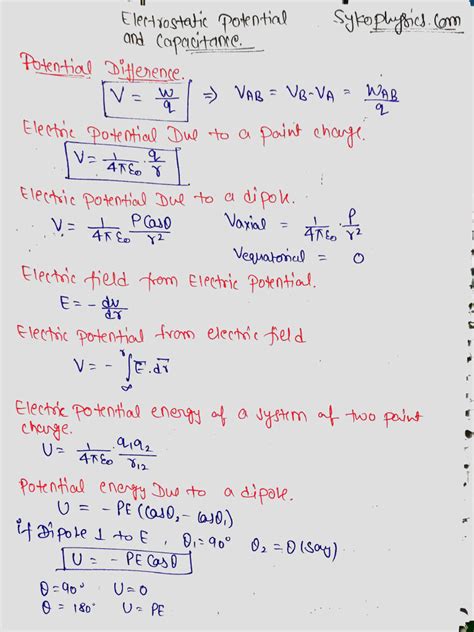 Electrostatic Potential Sykophysics.Com
and Capacitance.
Potential Difference.
V = W/q ⇒ V_AB = V_B - V_A = W_AB/q
Electric Potential Due to a point charge.
V = 1/4πε₀ · q/r
Electric potential Due to a dipole.
V = 1/4πε₀ PCosθ/r² Vaxial = 1/4πε₀ · P/r²
Vequatorial = 0
Electric field from Electric Potential.
E = - dv/dr
Electric potential from electric field
V = - ∫_∞^r E̅.dr̅
Electric potential energy of a system of two point
charge.
U = 1/4πε₀ · q₁q₂/r₁₂
Potential energy Due to a dipole.
U = - PE (Cosθ₂ - Cosθ₁)
if Dipole ⊥ to E , θ₁ = 90° θ₂ = θ (say)
U = - PE Cosθ
θ = 90° U = 0
θ = 180° U = PE